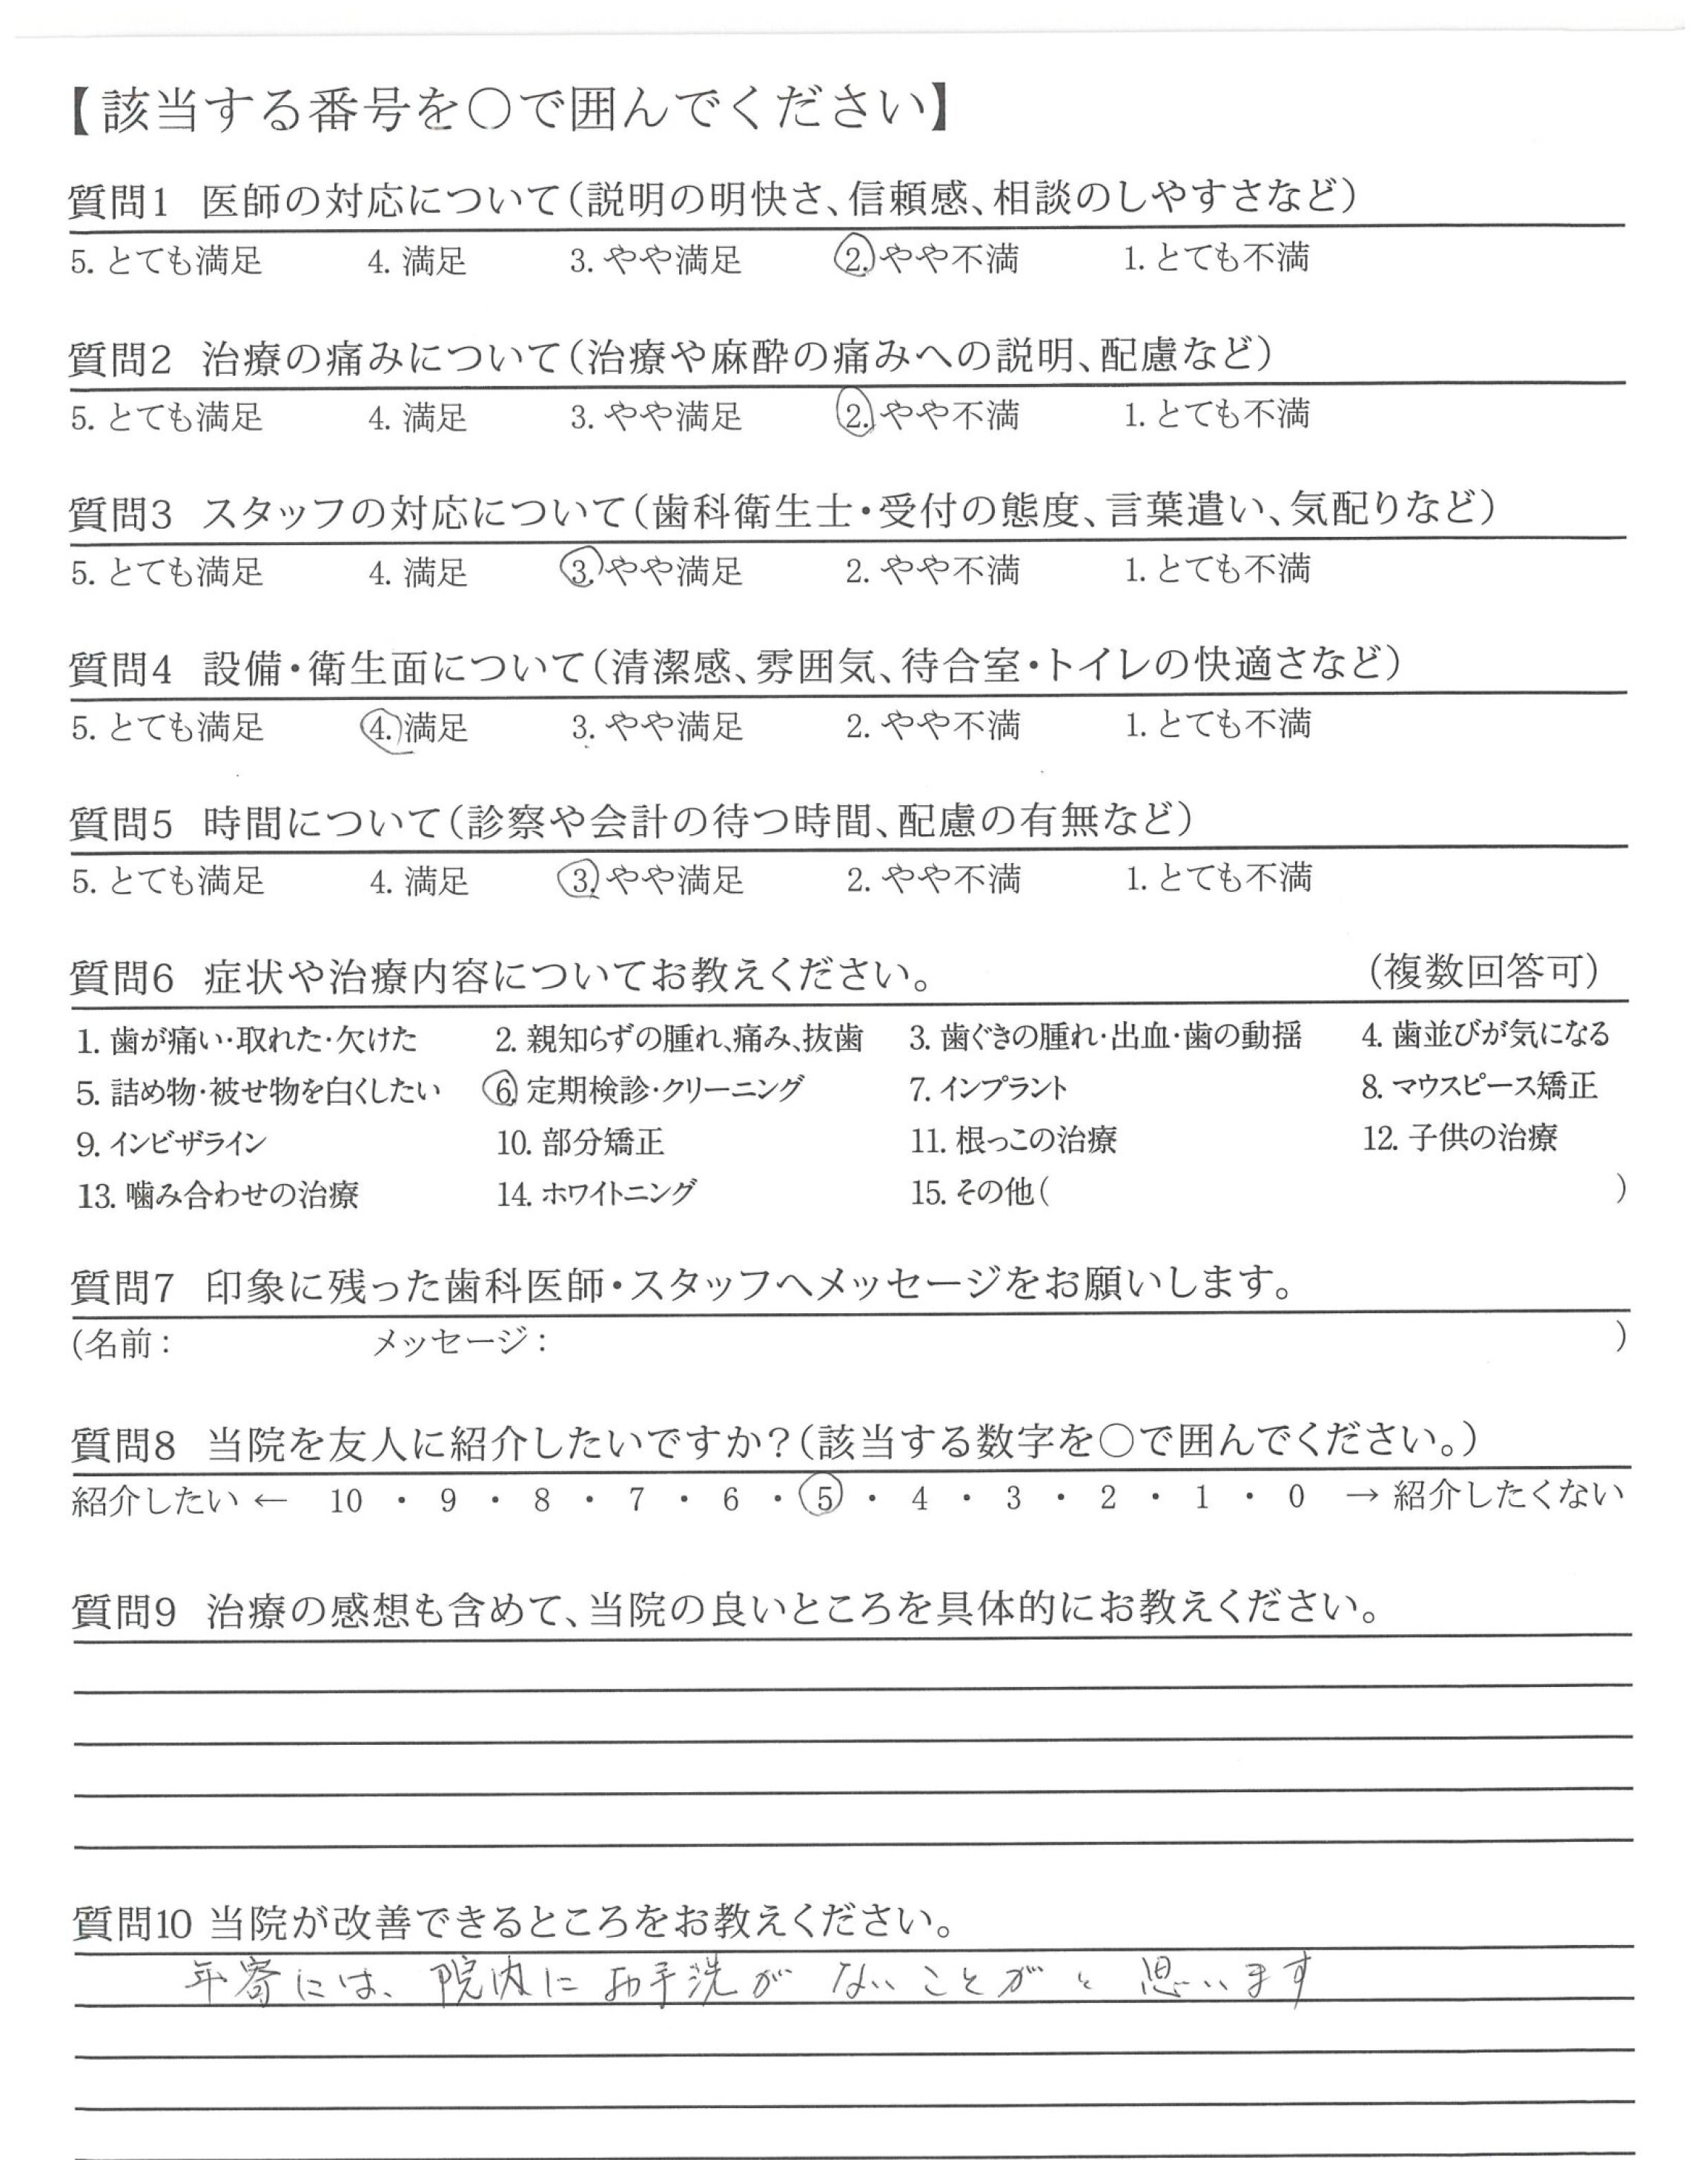 【該当する番号を〇で囲んでください】
質問1 医師の対応について(説明の明快さ、信頼感、相談のしやすさなど)
5. とても満足 4. 満足 3. やや満足 2. やや不満 1. とても不満
質問2 治療の痛みについて(治療や麻酔の痛みへの説明、配慮など)
5. とても満足 4. 満足 3. やや満足 2. やや不満 1. とても不満
質問3 スタッフの対応について(歯科衛生士・受付の態度、言葉遣い、気配りなど)
5. とても満足 4. 満足 3. やや満足 2. やや不満 1. とても不満
質問4 設備・衛生面について(清潔感、雰囲気、待合室・トイレの快適さなど)
5. とても満足 4. 満足 3. やや満足 2. やや不満 1. とても不満
質問5 時間について(診察や会計の待つ時間、配慮の有無など)
5. とても満足 4. 満足 3. やや満足 2. やや不満 1. とても不満
質問6 症状や治療内容についてお教えください。 (複数回答可)
1. 歯が痛い・取れた・欠けた 2. 親知らずの腫れ、痛み、抜歯 3. 歯ぐきの腫れ・出血・歯の動揺 4. 歯並びが気になる
5. 詰め物・被せ物を白くしたい 6. 定期検診・クリーニング 7. インプラント 8. マウスピース矯正
9. インビザライン 10. 部分矯正 11. 根っこの治療 12. 子供の治療
13. 噛み合わせの治療 14. ホワイトニング 15. その他( )
質問7 印象に残った歯科医師・スタッフへメッセージをお願いします。
(名前： メッセージ： )
質問8 当院を友人に紹介したいですか？(該当する数字を〇で囲んでください。)
紹介したい ← 10 ・ 9 ・ 8 ・ 7 ・ 6 ・ 5 ・ 4 ・ 3 ・ 2 ・ 1 ・ 0 → 紹介したくない
質問9 治療の感想も含めて、当院の良いところを具体的にお教えください。
質問10 当院が改善できるところをお教えください。
年寄には、院内にお手洗がないことが、と思います